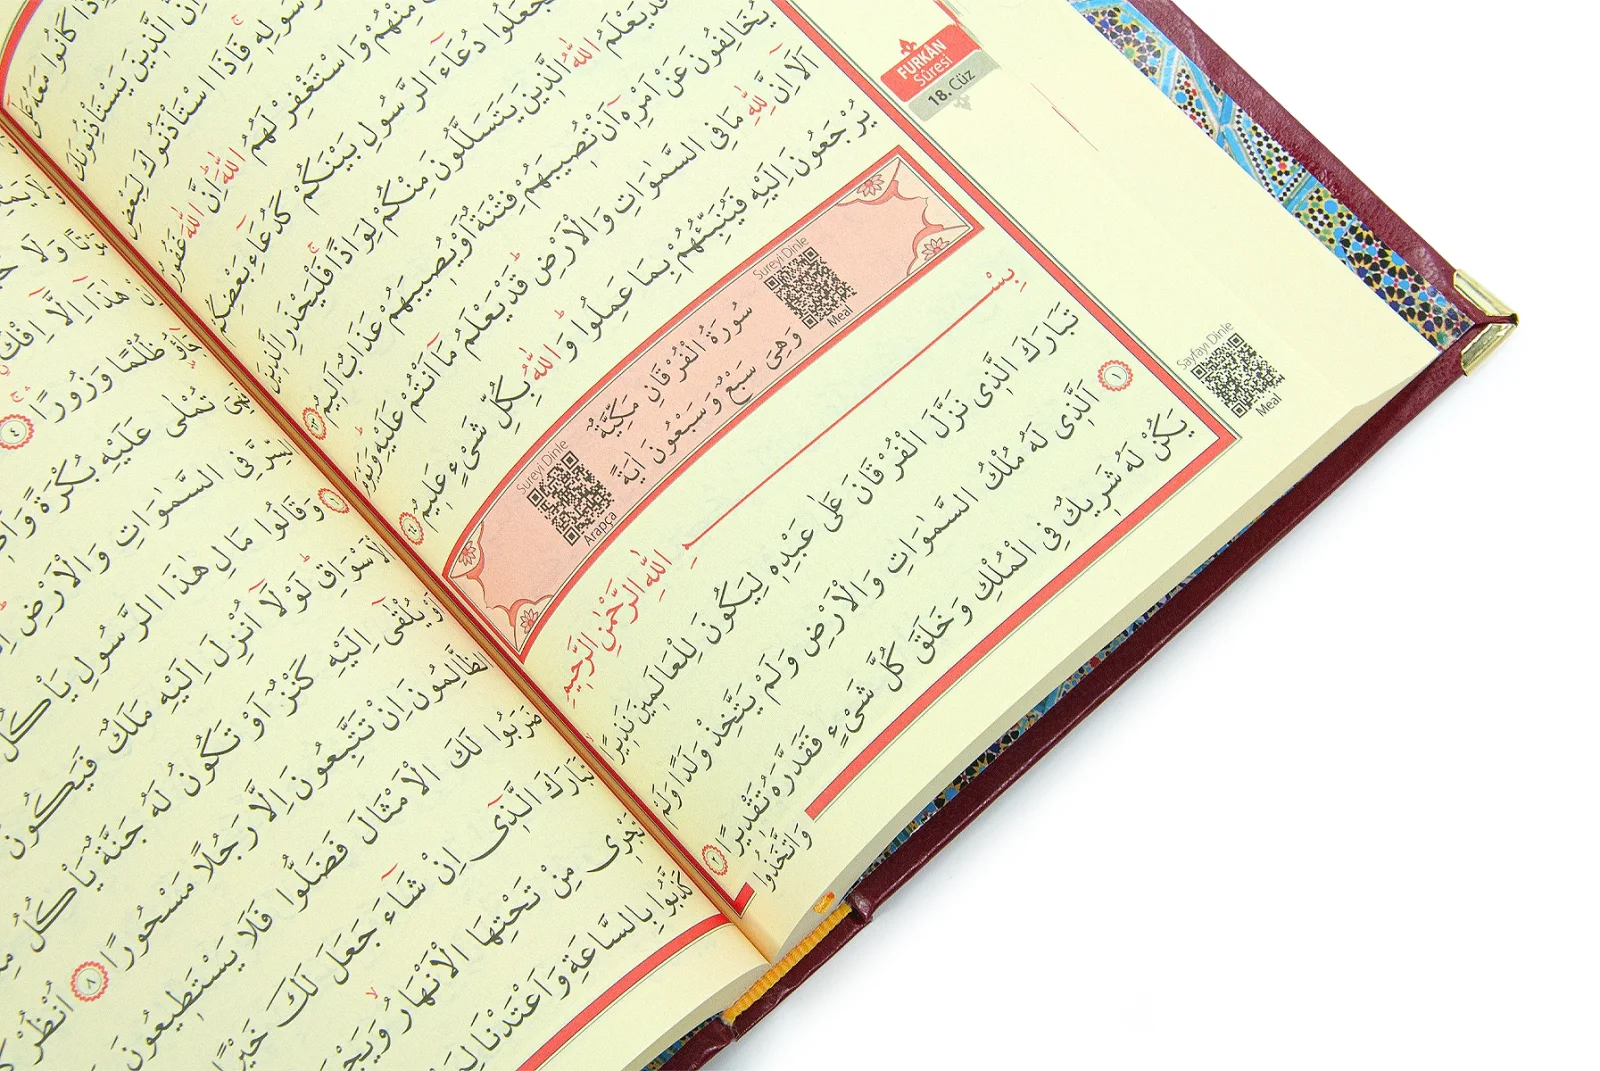 سُولِهِ فَاِذَا اسْتَاْذَنُوكَ لِبَعْضِ
مِنْهُمْ وَاسْتَغْفِرْ لَهُمُ اللّٰهَ اِنَّ اللّٰهَ غَفُورٌ
تَجْعَلُوا دُعَاءَ الرَّسُولِ بَيْنَكُمْ كَدُعَاءِ بَعْضِكُمْ
قَدْ يَعْلَمُ اللّٰهُ الَّذِينَ يَتَسَلَّلُونَ مِنْكُمْ لِوَاذًا فَلْيَحْذَرِ الَّذِينَ
يُخَالِفُونَ عَنْ اَمْرِهِ اَنْ تُصِيبَهُمْ فِتْنَةٌ اَوْ يُصِيبَهُمْ عَذَابٌ اَلِيمٌ ٦٣
اَلَا اِنَّ لِلّٰهِ مَا فِى السَّمٰوَاتِ وَالْاَرْضِ قَدْ يَعْلَمُ مَا اَنْتُمْ عَلَيْهِ وَيَوْمَ
يُرْجَعُونَ اِلَيْهِ فَيُنَبِّئُهُمْ بِمَا عَمِلُوا وَاللّٰهُ بِكُلِّ شَىْءٍ عَلِيمٌ ٦٤
FURKÂN
Sûresi
18. Cüz
Sureyi Dinle
Meal
سُورَةُ الْفُرْقَانِ مَكِّيَّةٌ
وَهِىَ سَبْعٌ وَسَبْعُونَ اٰيَةً
Sureyi Dinle
Arapça
بِسْمِ اللّٰهِ الرَّحْمٰنِ الرَّحِيمِ
تَبَارَكَ الَّذِى نَزَّلَ الْفُرْقَانَ عَلٰى عَبْدِهِ لِيَكُونَ لِلْعَالَمِينَ نَذِيرًا
١ اَلَّذِى لَهُ مُلْكُ السَّمٰوَاتِ وَالْاَرْضِ وَلَمْ يَتَّخِذْ وَلَدًا وَلَمْ
يَكُنْ لَهُ شَرِيكٌ فِى الْمُلْكِ وَخَلَقَ كُلَّ شَىْءٍ فَقَدَّرَهُ تَقْدِيرًا ٢
وَاتَّخَذُوا
Sayfayı Dinle
Meal
اِنْ هٰذَا اِلَّا اِفْكٌ
ظُلْمًا وَزُورًا ٤
تُمْلٰى عَلَيْهِ بُكْرَةً
السِّرَّ فِى السَّمٰوَاتِ وَالْاَرْضِ
٦ وَقَالُوا مَالِ هٰذَا الرَّسُولِ يَاْكُلُ
الْاَسْوَاقِ لَوْلَا اُنْزِلَ اِلَيْهِ مَلَكٌ فَيَكُونَ
يُلْقٰى اِلَيْهِ كَنْزٌ اَوْ تَكُونُ لَهُ جَنَّةٌ يَاْكُلُ
الظَّالِمُونَ اِنْ تَتَّبِعُونَ اِلَّا رَجُلًا مَسْحُورًا ٨ اُنْظُرْ
ضَرَبُوا لَكَ الْاَمْثَالَ فَضَلُّوا فَلَا يَسْتَطِيعُونَ
تَبَارَكَ الَّذِى اِنْ شَاءَ جَعَلَ لَكَ خَيْرًا
تَجْرِى مِنْ تَحْتِهَا الْاَنْهَارُ
كَذَّبُوا بِالسَّاعَةِ وَاَعْتَدْنَا